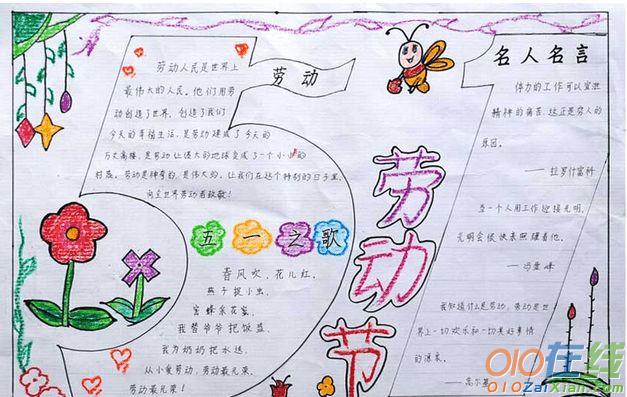 劳动
劳动人民是世界上
最伟大的人民。他们用劳
动创造了世界,创造了我们
今天的幸福生活,是劳动建成了今天的
万丈高楼,是劳动让偌大的地球变成了一个小小的
村落。劳动是神奇的,是伟大的。让我们在这个特别的日子里,
向全世界劳动者致敬!
五一之歌
春风吹,花儿红,
燕子捉小虫,
蜜蜂采花蜜,
我帮爷爷把饭盛
我为奶奶把水送
从小爱劳动,劳动最光荣,
劳动最光荣!
劳动节
名人名言
体力的工作可以宣泄
精神的痛苦,这正是穷人的
原因。
——拉罗什富科
当一个人用工作迎接光明,
光明会很快来照耀着他。
——冯雪峰
我知道什么是劳动,劳动是世
界上一切欢乐和一切美好事情
的源泉。
——高尔基
010在线
010ZaiXian.com